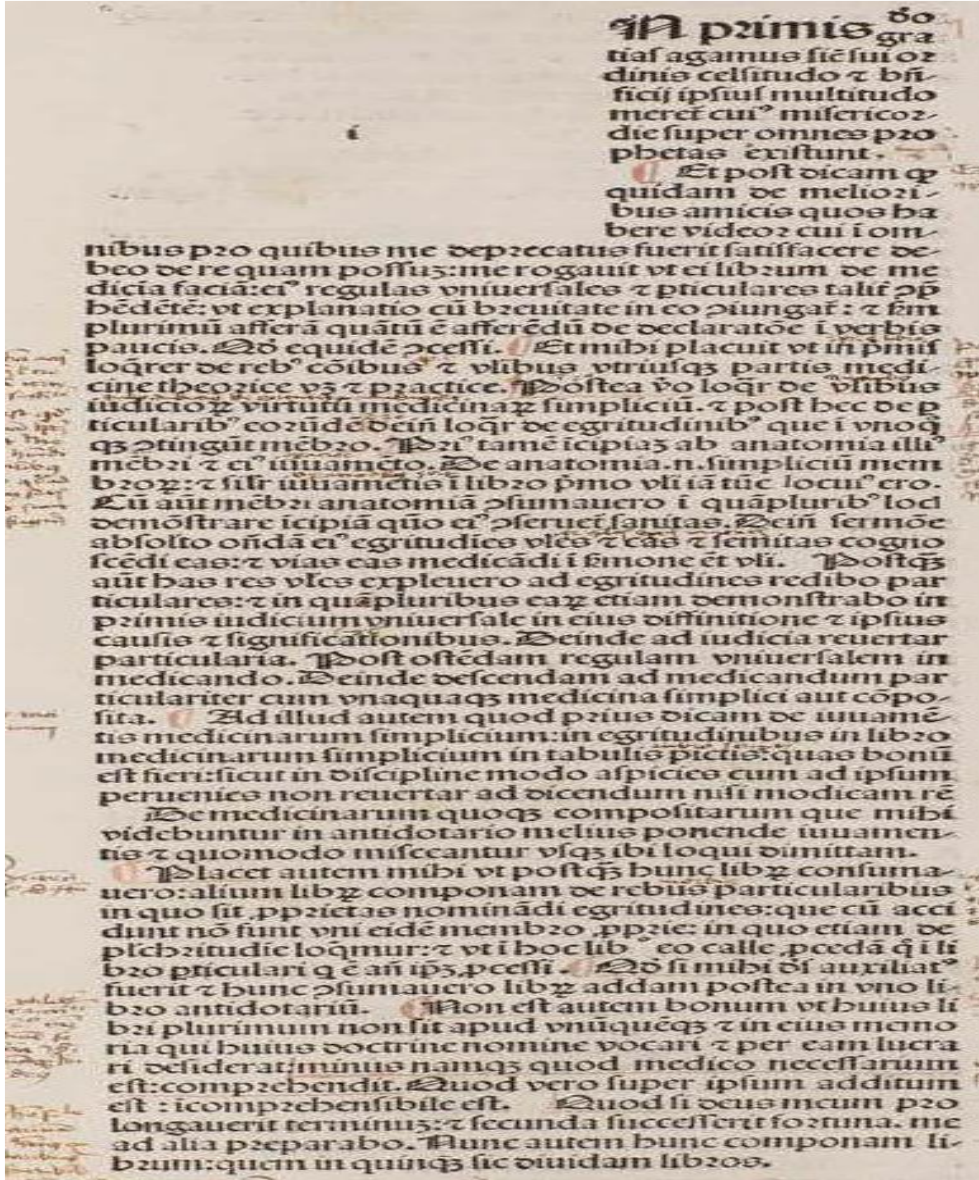 IN primis deo
gra
tias agamus sic̄ sui or
dinis celsitudo ⁊ bn̄-
ficij ipsius multitudo
meret̄ cuiꝰ misericor-
die super omnes pro
phetas existunt.
¶ Et post dicam ꝙ
quidam de meliori-
bus amicis quos ha
bere videor cui i om-
i
nibus pro quibus me deprecatus fuerit satisfacere de-
beo de re quam possuꝫ: me rogauit vt ei librum de me
dicīa faciā: eiꝰ regulas vniuersales ⁊ ꝑticulares talit̄ ↄp̄
hēdētē: vt explanatio cū breuitate in eo ↄiungat̄: ⁊ ẜm
plurimū afferā quātū ē afferēdū de declaratōe ī verbis
paucis. Qđ equidē ↄcessi. ¶ Et mihi placuit vt in p̄mis
loq̄rer de rebꝰ cōibus ⁊ vlibus vtriusqꝫ partis medi-
cine theorice vꝫ ⁊ practice. ¶ Postea v̄o loq̄r de vlibus
iudicioꝝ virtutū medicinaꝝ simpliciū. ⁊ post hec de ꝑ
ticularibꝰ eorūdē dein̄ loq̄r de egritudinibꝰ que ī vnoq̄
qꝫ ↄtingūt mēbro. Priꝰ tamē īcipiaꝫ ab anatomia illiꝰ
mēbri ⁊ eiꝰ iuuamēto. De anatomia .n. simpliciū mem
broꝝ: ⁊ silr iuuamētis ī libro p̄mo vli iā tūc locutꝰ ero.
Cū aūt mēbri anatomiā ↄsumauero ī quāpluribꝰ loci
demōstrare īcipiā quō eiꝰ ↄseruet̄ sanitas. Dein̄ sermōe
absolto on̄dā eiꝰ egritudies vl̄es ⁊ cās ⁊ semitas cogno
scēdi eas: ⁊ vias eas medicādi ī ẜmone ēt vli. Postqꝫ
aūt has res vl̄es expleuero ad egritudines redibo par
ticulares: ⁊ in quāpluribus eaꝝ etiam demonstrabo in
primis iudicium vniuersale in eius diffinitione ⁊ ipsius
causis ⁊ significationibus. Deinde ad iudicia reuertar
particularia. Post ostēdam regulam vniuersalem in
medicando. Deinde descendam ad medicandum par
ticulariter cum vnaquaqꝫ medicina simplici aut cōpo-
sita. ¶ Ad illud autem quod prius dicam de iuuamē-
tis medicinarum simplicium: in egritudinibus in libro
medicinarum simplicium in tabulis pictis: quas bonū
est fieri: sicut in discipline modo aspicies cum ad ipsum
peruenies non reuertar ad dicendum nisi modicam rē
De medicinarum quoqꝫ compositarum que mihi
videbuntur in antidotario melius ponende iuuamen-
tis ⁊ quomodo misceantur vsqꝫ ibi loqui dimittam.
¶ Placet autem mihi vt postqꝫ hunc libꝝ consuma-
uero: alium libꝝ componam de rebus particularibus
in quo sit ꝓprietas nominādi egritudines: que cū acci
dunt nō sunt vni eidē membro ꝓprie: in quo etiam de
plchritudie loq̄mur: ⁊ vt i hoc libꝰ eo calle ꝓcedā q̄ i li
bro ꝑticulari q ē an̄ ip̄ꝫ ꝓcessi. ¶ Qđ si mihi d̄s auxiliatꝰ
fuerit ⁊ hunc ↄsumauero libꝝ addam postea in vno li-
bro antidotariū. ¶ Non est autem bonum vt huius li
bri plurimum non sit apud vnūquēqꝫ ⁊ in eius memo
ria qui huius doctrine nomine vocari ⁊ per eam lucra
ri desiderat: minus namqꝫ quod medico necessarium
est: comprehendit. Quod vero super ipsum additum
est : icomprehensibile est. Quod si deus meum pro
longauerit terminuꝫ: ⁊ secunda successerit fortuna. me
ad alia preparabo. Nunc autem hunc componam li-
brum: quem in quinqꝫ sic diuidam libros.